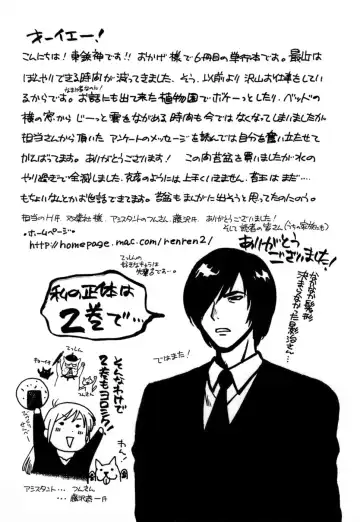 きーイエー!
こんにちは！東鉄神です!! おかげ様で6冊目の単行本です。最近は
ぼんやりできる時間が減ってきました。そう、以前より沢山お仕事をして
いるからです。お話にも出て来た植物園でボケーっとしたり、ベッドの
横の窓からじーっと雲をながめる時間も今ではなくなってしまいましたが
担当さんから頂いたアンケートのメッセージを読んでは自分を奮い立たせて
がんばってます。ありがとうございます！この間苔盆を買いましたが水の
やり過ぎで全滅しました。
もちろんなんとかお世話できてます。苔盆もまんがに出そうと思ってたのになのう。
アシスタントのつんさん、藤沢さん、ありがとうございました！
そして読者の皆さん(うちの家族にも)
ありがとう
ございました！
・ホームページ・
http://homepage.mac.com/renren2/
私の正体は
2巻で…
そんなわけで
2巻もヨロシク!!
なかなか髪形
決まらなかった
ではまた！
てっしん
わん！
アシスタント… つんさん
… 藤沢